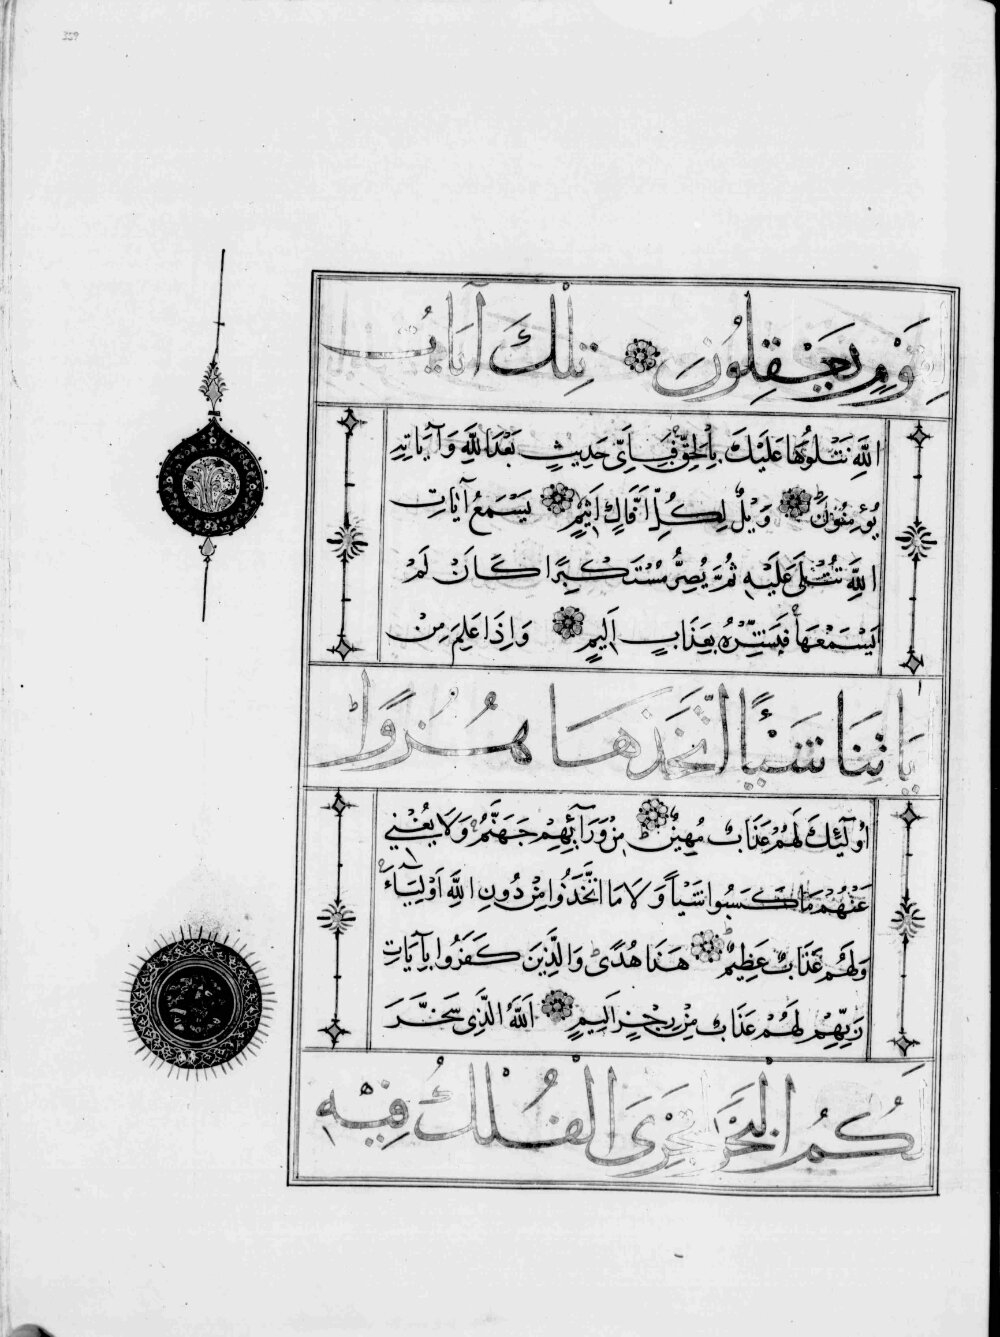 329
لِقَوْمٍ يَعْقِلُونَ تِلْكَ آيَاتُ
اللَّهِ نَتْلُوهَا عَلَيْكَ بِالْحَقِّ فَبِأَىِّ حَدِيثٍ بَعْدَ اللَّهِ وَآيَاتِهِ
يُؤْمِنُونَ وَيْلٌ لِكُلِّ أَفَّاكٍ أَثِيمٍ يَسْمَعُ آيَاتِ
اللَّهِ تُتْلَى عَلَيْهِ ثُمَّ يُصِرُّ مُسْتَكْبِرًا كَانَ لَمْ
يَسْمَعْهَا فَبَشِّرْهُ بِعَذَابٍ اَلِيمٍ وَاِذَا عَلِمَ مِنْ
آيَاتِنَا شَيْئًا اتَّخَذَهَا هُزُوًا
اُولَٓئِكَ لَهُمْ عَذَابٌ مُهِينٌ مِنْ وَرَآئِهِمْ جَهَنَّمُ وَلَا يُغْنِي
عَنْهُمْ مَا كَسَبُوا شَيْئًا وَلَا مَا اتَّخَذُوا مِنْ دُونِ اللَّهِ اَوْلِيَاءَ
وَلَهُمْ عَذَابٌ عَظِيمٌ هَذَا هُدًى وَالَّذِينَ كَفَرُوا بِآيَاتِ
رَبِّهِمْ لَهُمْ عَذَابٌ مِنْ رِجْزٍ اَلِيمٍ اَللَّهُ الَّذِى سَخَّرَ
لَكُمُ الْبَحْرَ لِتَجْرِىَ الْفُلْكُ فِيهِ